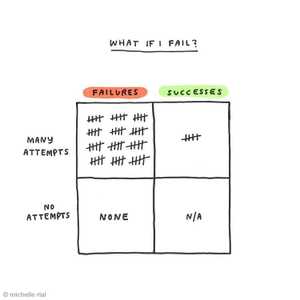 WHAT IF I FAIL?
FAILURES SUCCESSES
MANY
ATTEMPTS
NO
ATTEMPTS
NONE N/A
© michelle rial